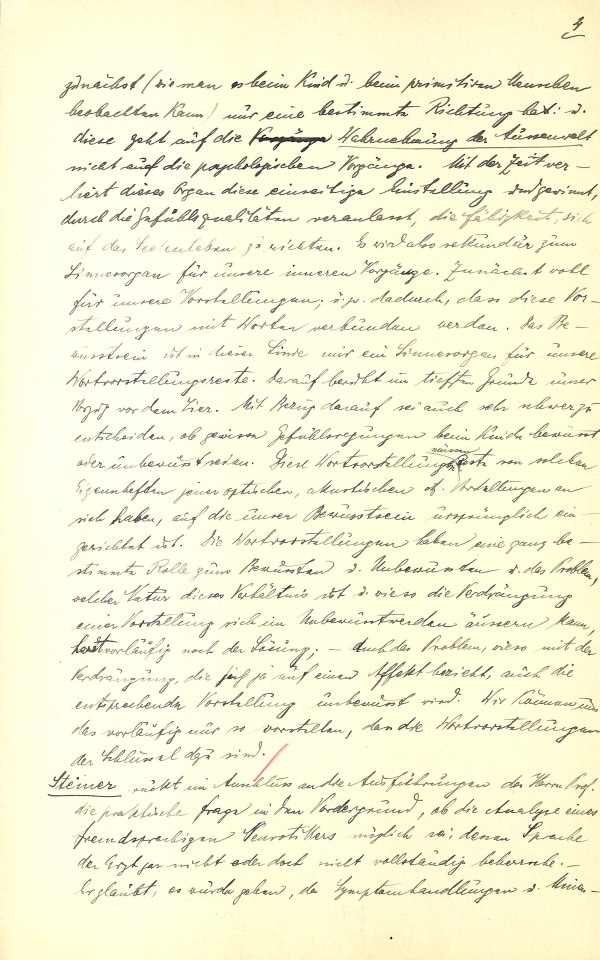 4
zunächst (wie man es beim Kind u. beim primitiven Menschen
beobachten kann) nur eine bestimmte Richtung hat: u.
diese geht auf die Vorgänge Wahrnehmung der Aussenwelt
nicht auf die psychologischen Vorgänge. Mit der Zeit ver-
liert dieses Organ diese einseitige Einstellung und gewinnt,
durch die Gefühlsqualitäten veranlasst, die Fähigkeit, sich
auf das Seelenleben zu richten. Es wird also sekundär zum
Sinnesorgan für unsere inneren Vorgänge. Zunächst wohl
für unsere Vorstellungen; u. zw. dadurch, dass diese Vor-
stellungen mit Worten verbunden werden. Das Be-
wusstsein ist in dieser Linie nur ein Sinnesorgan für unsere
Wortvorstellungsreste. Darauf beruht im tiefsten Grunde unser
Vorzug vor dem Tier. Mit Bezug darauf sei auch sehr schwer zu
entscheiden, ob gewisse Gefühlsregungen beim Kinde bewusst
oder unbewusst seien. Diese Wortvorstellungsreste müssen von solchen
Eigenheiten jener optischen, akustischen etc. Vorstellungen an
sich haben, auf die unser Bewusstsein ursprünglich ein-
gerichtet ist. Die Wortvorstellungen haben eine ganz be-
stimmte Rolle zum Bewussten u. Unbewussten u. das Problem,
welcher Natur dieses Verhältnis ist u. wieso die Verdrängung
einer Vorstellung sich im Unbewusstwerden äussern kann,
harrt vorläufig noch der Lösung; – Auch das Problem, wieso mit der
Verdrängung, die sich ja auf einen Affekt bezieht, auch die
entsprechende Vorstellung unbewusst wird. Wir können uns
das vorläufig nur so vorstellen, dass die Wortvorstellungen
der Schlüssel dazu sind.
Steiner rückt im Anschluss an die Ausführungen des Herrn Prof.
die praktische Frage in den Vordergrund, ob die Analyse eines
fremdsprachigen Neurotikers möglich sei, dessen Sprache
der Arzt gar nicht oder doch nicht vollständig beherrsche. –
Er glaubt, es würde gehen, da Symptomhandlungen u. Mienen-